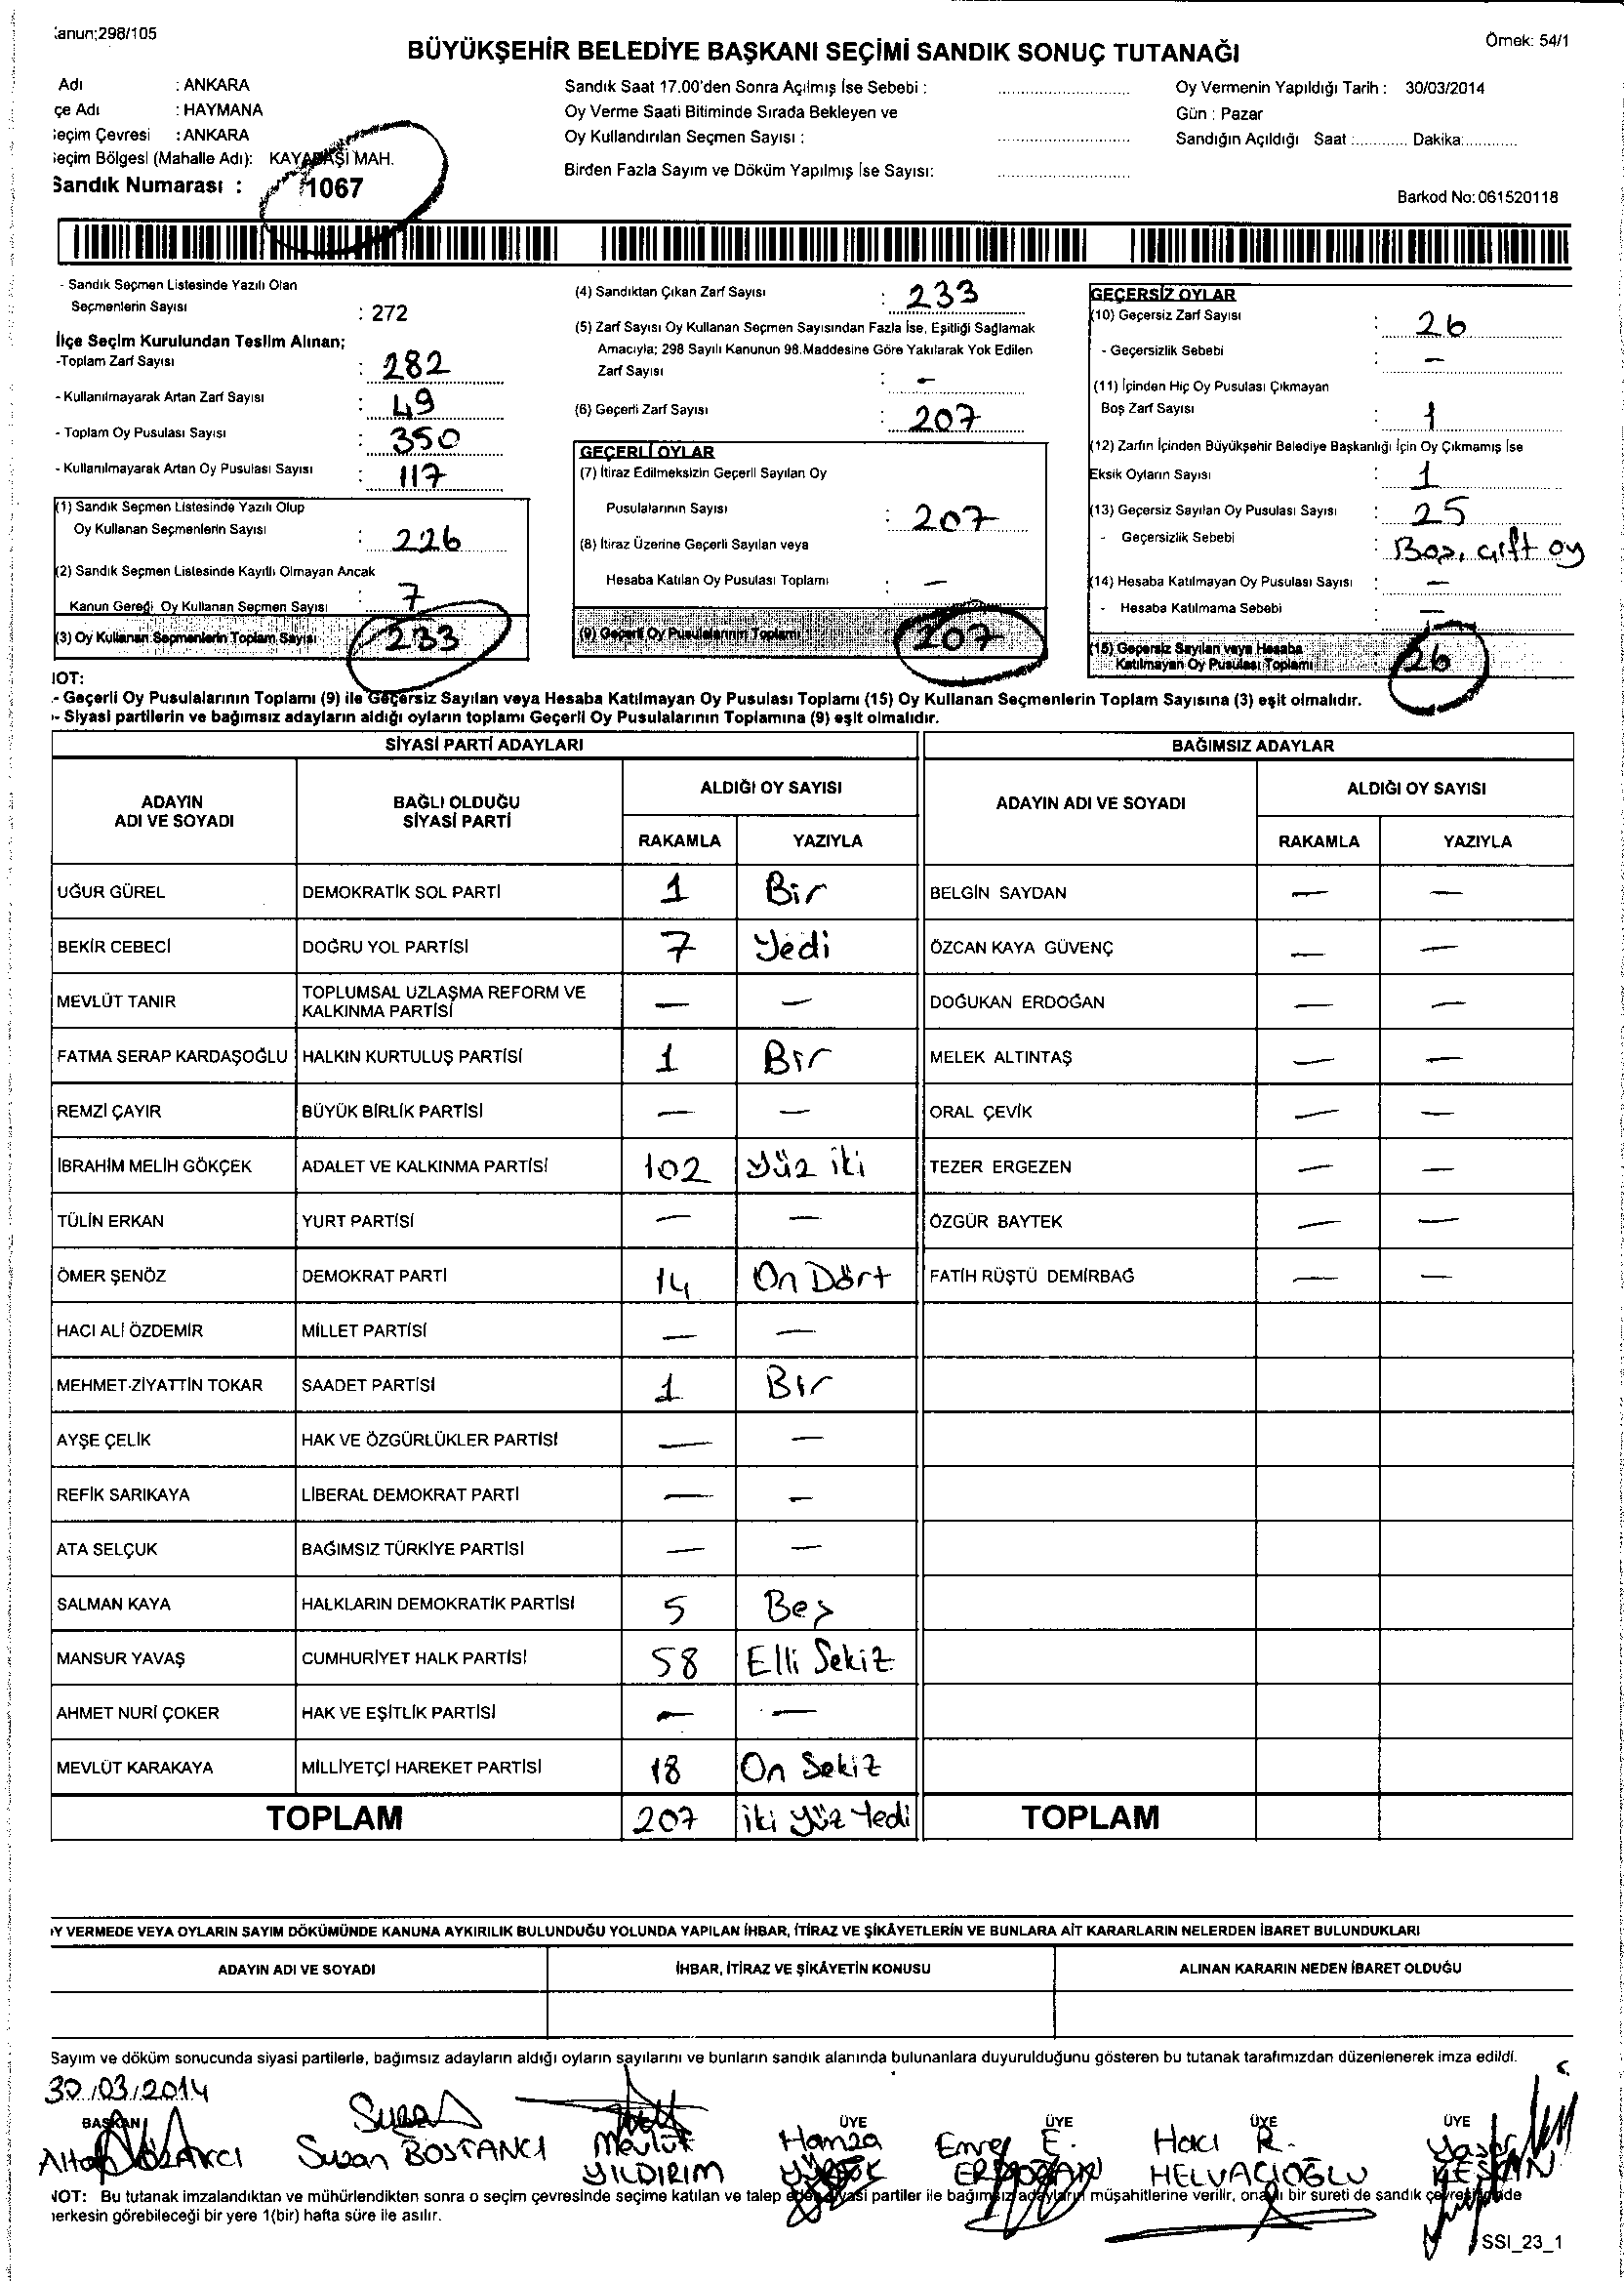 Kanun;298/105
Örnek: 54/1
BÜYÜKŞEHİR BELEDİYE BAŞKANI SEÇİMİ SANDIK SONUÇ TUTANAĞI
Adı : ANKARA
çe Adı : HAYMANA
eçim Çevresi : ANKARA
eçim Bölgesi (Mahalle Adı): KAYABAŞI MAH.
Sandık Numarası : 1067
Sandık Saat 17.00'den Sonra Açılmış İse Sebebi :
Oy Verme Saati Bitiminde Sırada Bekleyen ve
Oy Kullandırılan Seçmen Sayısı :
Birden Fazla Sayım ve Döküm Yapılmış İse Sayısı:
Oy Vermenin Yapıldığı Tarih : 30/03/2014
Gün : Pazar
Sandığın Açıldığı Saat :............ Dakika:............
Barkod No:061520118
- Sandık Seçmen Listesinde Yazılı Olan
Seçmenlerin Sayısı : 272
İlçe Seçim Kurulundan Teslim Alınan;
-Toplam Zarf Sayısı : 282
- Kullanılmayarak Artan Zarf Sayısı : 49
- Toplam Oy Pusulası Sayısı : 350
- Kullanılmayarak Artan Oy Pusulası Sayısı : 117
(1) Sandık Seçmen Listesinde Yazılı Olup
Oy Kullanan Seçmenlerin Sayısı : 226
(2) Sandık Seçmen Listesinde Kayıtlı Olmayan Ancak
Kanun Gereği Oy Kullanan Seçmen Sayısı : 7
(3) Oy Kullanan Seçmenlerin Toplam Sayısı : 233
(4) Sandıktan Çıkan Zarf Sayısı : 233
(5) Zarf Sayısı Oy Kullanan Seçmen Sayısından Fazla İse, Eşitliği Sağlamak
Amacıyla; 298 Sayılı Kanunun 98.Maddesine Göre Yakılarak Yok Edilen
Zarf Sayısı : -
(6) Geçerli Zarf Sayısı : 207
GEÇERLİ OYLAR
(7) İtiraz Edilmeksizin Geçerli Sayılan Oy
Pusulalarının Sayısı : 207
(8) İtiraz Üzerine Geçerli Sayılan veya
Hesaba Katılan Oy Pusulası Toplamı : -
(9) Geçerli Oy Pusulalarının Toplamı : 207
GEÇERSİZ OYLAR
(10) Geçersiz Zarf Sayısı : 26
- Geçersizlik Sebebi : -
(11) İçinden Hiç Oy Pusulası Çıkmayan
Boş Zarf Sayısı : 1
(12) Zarfın İçinden Büyükşehir Belediye Başkanlığı İçin Oy Çıkmamış İse
Eksik Oyların Sayısı : 1
(13) Geçersiz Sayılan Oy Pusulası Sayısı : 25
- Geçersizlik Sebebi : Boş, çift oy
(14) Hesaba Katılmayan Oy Pusulası Sayısı : -
- Hesaba Katılmama Sebebi : -
(15) Geçersiz Sayılan veya Hesaba
Katılmayan Oy Pusulası Toplamı : 26
NOT:
- Geçerli Oy Pusulalarının Toplamı (9) ile Geçersiz Sayılan veya Hesaba Katılmayan Oy Pusulası Toplamı (15) Oy Kullanan Seçmenlerin Toplam Sayısına (3) eşit olmalıdır.
- Siyasi partilerin ve bağımsız adayların aldığı oyların toplamı Geçerli Oy Pusulalarının Toplamına (9) eşit olmalıdır.
SİYASİ PARTİ ADAYLARI BAĞIMSIZ ADAYLAR
ADAYIN ADI VE SOYADI BAĞLI OLDUĞU SİYASİ PARTİ ALDIĞI OY SAYISI ADAYIN ADI VE SOYADI ALDIĞI OY SAYISI
RAKAMLA YAZIYLA RAKAMLA YAZIYLA
UĞUR GÜREL DEMOKRATİK SOL PARTİ 1 Bir BELGİN SAYDAN - -
BEKİR CEBECİ DOĞRU YOL PARTİSİ 7 Yedi ÖZCAN KAYA GÜVENÇ - -
MEVLÜT TANIR TOPLUMSAL UZLAŞMA REFORM VE KALKINMA PARTİSİ - - DOĞUKAN ERDOĞAN - -
FATMA SERAP KARDAŞOĞLU HALKIN KURTULUŞ PARTİSİ 1 Bir MELEK ALTINTAŞ - -
REMZİ ÇAYIR BÜYÜK BİRLİK PARTİSİ - - ORAL ÇEVİK - -
İBRAHİM MELİH GÖKÇEK ADALET VE KALKINMA PARTİSİ 102 Yüz iki TEZER ERGEZEN - -
TÜLİN ERKAN YURT PARTİSİ - - ÖZGÜR BAYTEK - -
ÖMER ŞENÖZ DEMOKRAT PARTİ 14 On Dört FATİH RÜŞTÜ DEMİRBAĞ - -
HACI ALİ ÖZDEMİR MİLLET PARTİSİ - -
MEHMET ZİYATTİN TOKAR SAADET PARTİSİ 1 Bir
AYŞE ÇELİK HAK VE ÖZGÜRLÜKLER PARTİSİ - -
REFİK SARIKAYA LİBERAL DEMOKRAT PARTİ - -
ATA SELÇUK BAĞIMSIZ TÜRKİYE PARTİSİ - -
SALMAN KAYA HALKLARIN DEMOKRATİK PARTİSİ 5 Beş
MANSUR YAVAŞ CUMHURİYET HALK PARTİSİ 58 Elli Sekiz
AHMET NURİ ÇOKER HAK VE EŞİTLİK PARTİSİ - -
MEVLÜT KARAKAYA MİLLİYETÇİ HAREKET PARTİSİ 18 On Sekiz
TOPLAM 207 iki yüz Yedi TOPLAM
OY VERMEDE VEYA OYLARIN SAYIM DÖKÜMÜNDE KANUNA AYKIRILIK BULUNDUĞU YOLUNDA YAPILAN İHBAR, İTİRAZ VE ŞİKÂYETLERİN VE BUNLARA AİT KARARLARIN NELERDEN İBARET BULUNDUKLARI
ADAYIN ADI VE SOYADI İHBAR, İTİRAZ VE ŞİKÂYETİN KONUSU ALINAN KARARIN NEDEN İBARET OLDUĞU
Sayım ve döküm sonucunda siyasi partilerle, bağımsız adayların aldığı oyların sayılarını ve bunların sandık alanında bulunanlara duyurulduğunu gösteren bu tutanak tarafımızdan düzenlenerek imza edildi.
30/03/2014
BAŞKAN ÜYE ÜYE ÜYE ÜYE
Suzan BOSTANCI Mevlüt YILDIRIM Hamza Emre E. ERDOĞAN Hacı R. HELVACIOĞLU Yaşar
NOT: Bu tutanak imzalandıktan ve mühürlendikten sonra o seçim çevresinde seçime katılan ve talep eden siyasi partiler ile bağımsız adayların müşahitlerine verilir, onaylı bir sureti de sandık çevresinde
herkesin görebileceği bir yere 1(bir) hafta süre ile asılır.
SSI_23_1